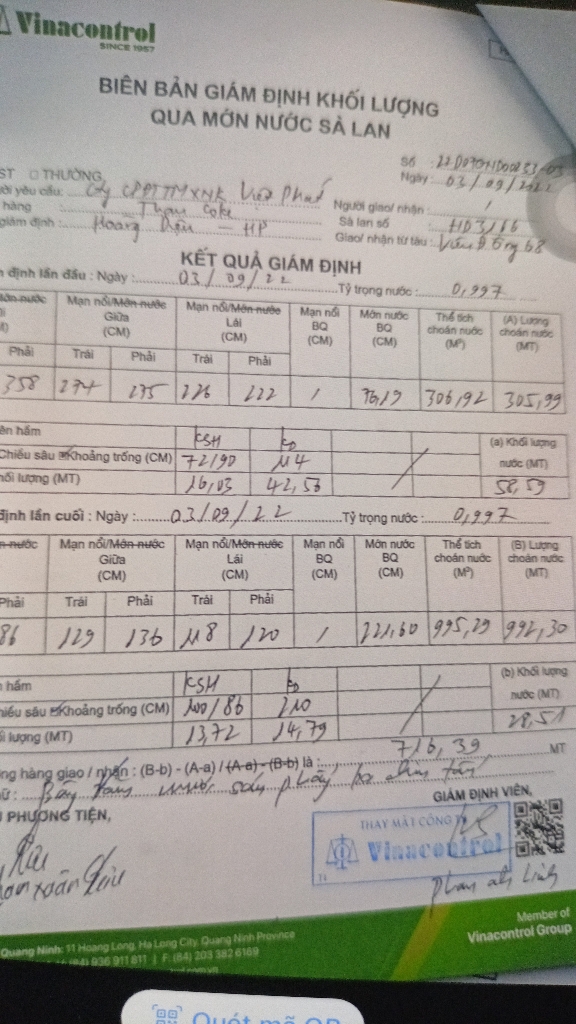 Vinacontrol
SINCE 1957
BIÊN BẢN GIÁM ĐỊNH KHỐI LƯỢNG
QUA MỚN NƯỚC SÀ LAN
ST □ THƯỜNG
Số
Ngày: 03/09/2022
ời yêu cầu: Cty CPĐTTMXNK Việt Phát
Người giao/ nhận: /
hàng : Than Coke
Sà lan số : HD3166
giám định : Hoàng Diệu – HP
Giao/ nhận từ tàu :
KẾT QUẢ GIÁM ĐỊNH
định lần đầu : Ngày : 03/09/22 Tỷ trọng nước : 0,997
Mớn nước Mạn nổi/Mớn nước Giữa (CM) Mạn nổi/Mớn nước Lái (CM) Mạn nổi BQ (CM) Mớn nước BQ (CM) Thể tích choán nước (M³) (A) Lượng choán nước (MT)
Phải Trái Phải Trái Phải
358 274 275 226 222 / 76,19 306,92 305,99
ên hầm KSH KĐ (a) Khối lượng nước (MT)
Chiều sâu Khoảng trống (CM) 72/90 114
hối lượng (MT) 16,03 42,56 58,59
định lần cuối : Ngày : 03/09/22 Tỷ trọng nước : 0,997
n nước Mạn nổi/Mớn nước Giữa (CM) Mạn nổi/Mớn nước Lái (CM) Mạn nổi BQ (CM) Mớn nước BQ (CM) Thể tích choán nước (M³) (B) Lượng choán nước (MT)
Phải Trái Phải Trái Phải
86 129 136 118 120 / 221,60 995,29 992,30
hầm KSH KĐ (b) Khối lượng nước (MT)
hiều sâu Khoảng trống (CM) 100/86 210
ối lượng (MT) 13,72 14,79 28,51
ng hàng giao / nhận : (B-b) - (A-a) / (A-a) - (B-b) là : 716,39 MT
PHƯƠNG TIỆN,
GIÁM ĐỊNH VIÊN,
THAY MẶT CÔNG TY
Vinacontrol
Quang Ninh: 11 Hoang Long, Ha Long City, Quang Ninh Province
(84) 936 911 811 | F: (84) 203 382 6169
Member of
Vinacontrol Group
Quét mã QR